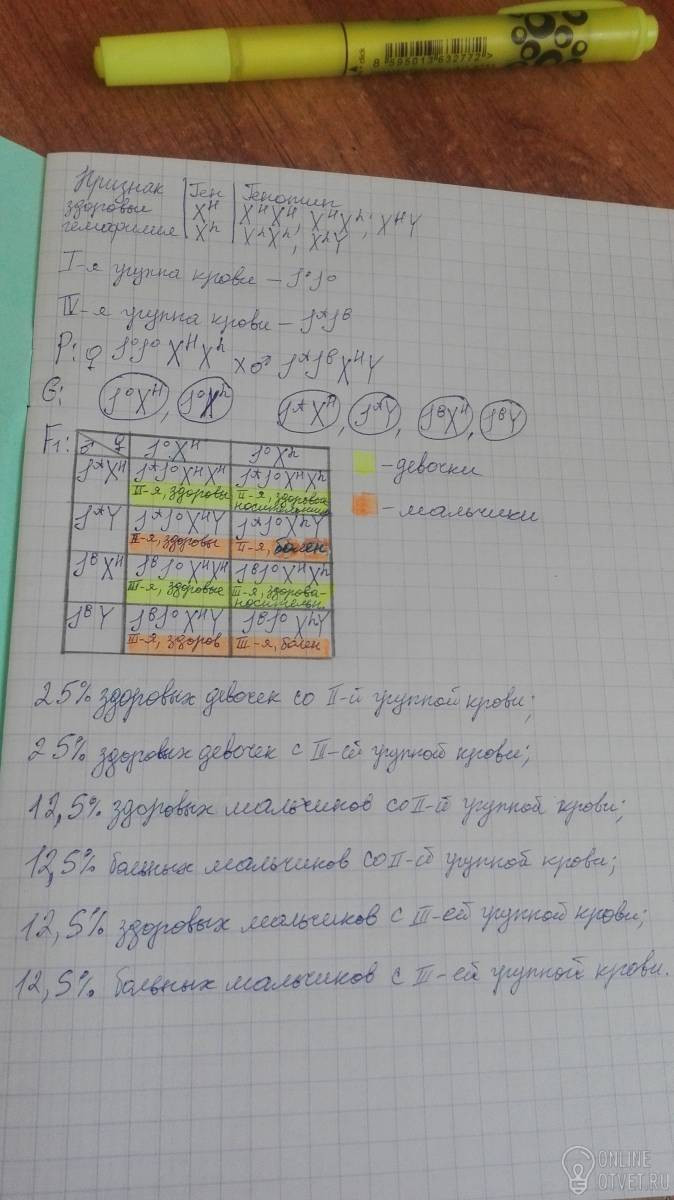 click
8 595013 632772 >
Признак | Ген | Генотип
здоровые | Xᴴ | XᴴXᴴ, XᴴXʰ; XᴴY
гемофилия | Xʰ | XʰXʰ, XʰY
I-я группа крови – J⁰J⁰
IV-я группа крови – JᴬJᴮ
P: ♀ J⁰J⁰ XᴴXʰ x ♂ JᴬJᴮ XᴴY
G: J⁰Xᴴ, J⁰Xʰ JᴬXᴴ, JᴬY, JᴮXᴴ, JᴮY
F₁: ♂ ♀ | J⁰Xᴴ | J⁰Xʰ
JᴬXᴴ | JᴬJ⁰XᴴXᴴ II-я, здоровы | JᴬJ⁰XᴴXʰ II-я, здоровая носительница
JᴬY | JᴬJ⁰XᴴY II-я, здоровы | JᴬJ⁰XʰY II-я, болен
JᴮXᴴ | JᴮJ⁰XᴴXᴴ III-я, здоровые | JᴮJ⁰XᴴXʰ III-я, здорова-носительн.
JᴮY | JᴮJ⁰XᴴY III-я, здоров | JᴮJ⁰XʰY III-я, болен
- девочки
- мальчики
25% здоровых девочек со II-й группой крови;
25% здоровых девочек с III-ей группой крови;
12,5% здоровых мальчиков со II-й группой крови;
12,5% больных мальчиков со II-й группой крови;
12,5% здоровых мальчиков с III-ей группой крови;
12,5% больных мальчиков с III-ей группой крови.
ONLINE
OTVET.RU